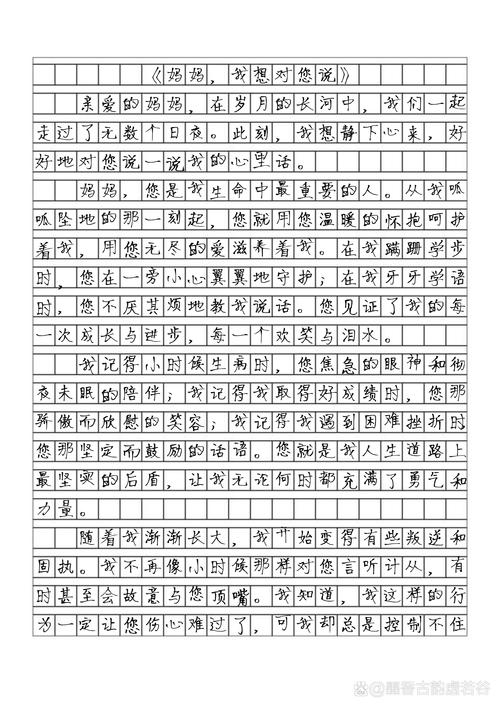 《妈妈，我想对您说》
亲爱的妈妈，在岁月的长河中，我们一起
走过了无数个日夜。此刻，我想静下心来，好
好地对您说一说我的心里话。
妈妈，您是我生命中最重要的人。从我呱
呱坠地的那一刻起，您就用您温暖的怀抱呵护
着我，用您无尽的爱滋养着我。在我蹒跚学步
时，您在一旁小心翼翼地守护；在我牙牙学语
时，您不厌其烦地教我说话。您见证了我的每
一次成长与进步，每一个欢笑与泪水。
我记得小时候生病时，您焦急的眼神和彻
夜未眠的陪伴；我记得我取得好成绩时，您那
骄傲而欣慰的笑容；我记得我遇到困难挫折时
您那坚定而鼓励的话语。您就是我人生道路上
最坚实的后盾，让我无论何时都充满了勇气和
力量。
随着我渐渐长大，我开始变得有些叛逆和
固执。我不再像小时候那样对您言听计从，有
时甚至会故意与您顶嘴。我知道，我这样的行
为一定让您伤心难过了，可我却总是控制不住